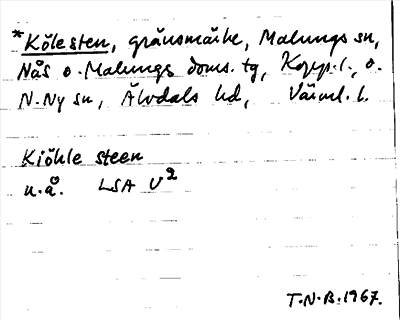 *Kölesten, gränsmärke, Malungs sn,
Nås o. Malungs doms. tg, Kopp. l., o.
N. Ny sn, Älvdals hd, Värml. l.
Kiöhle steen
u.å. LSA U²
T.N.B. 1967.